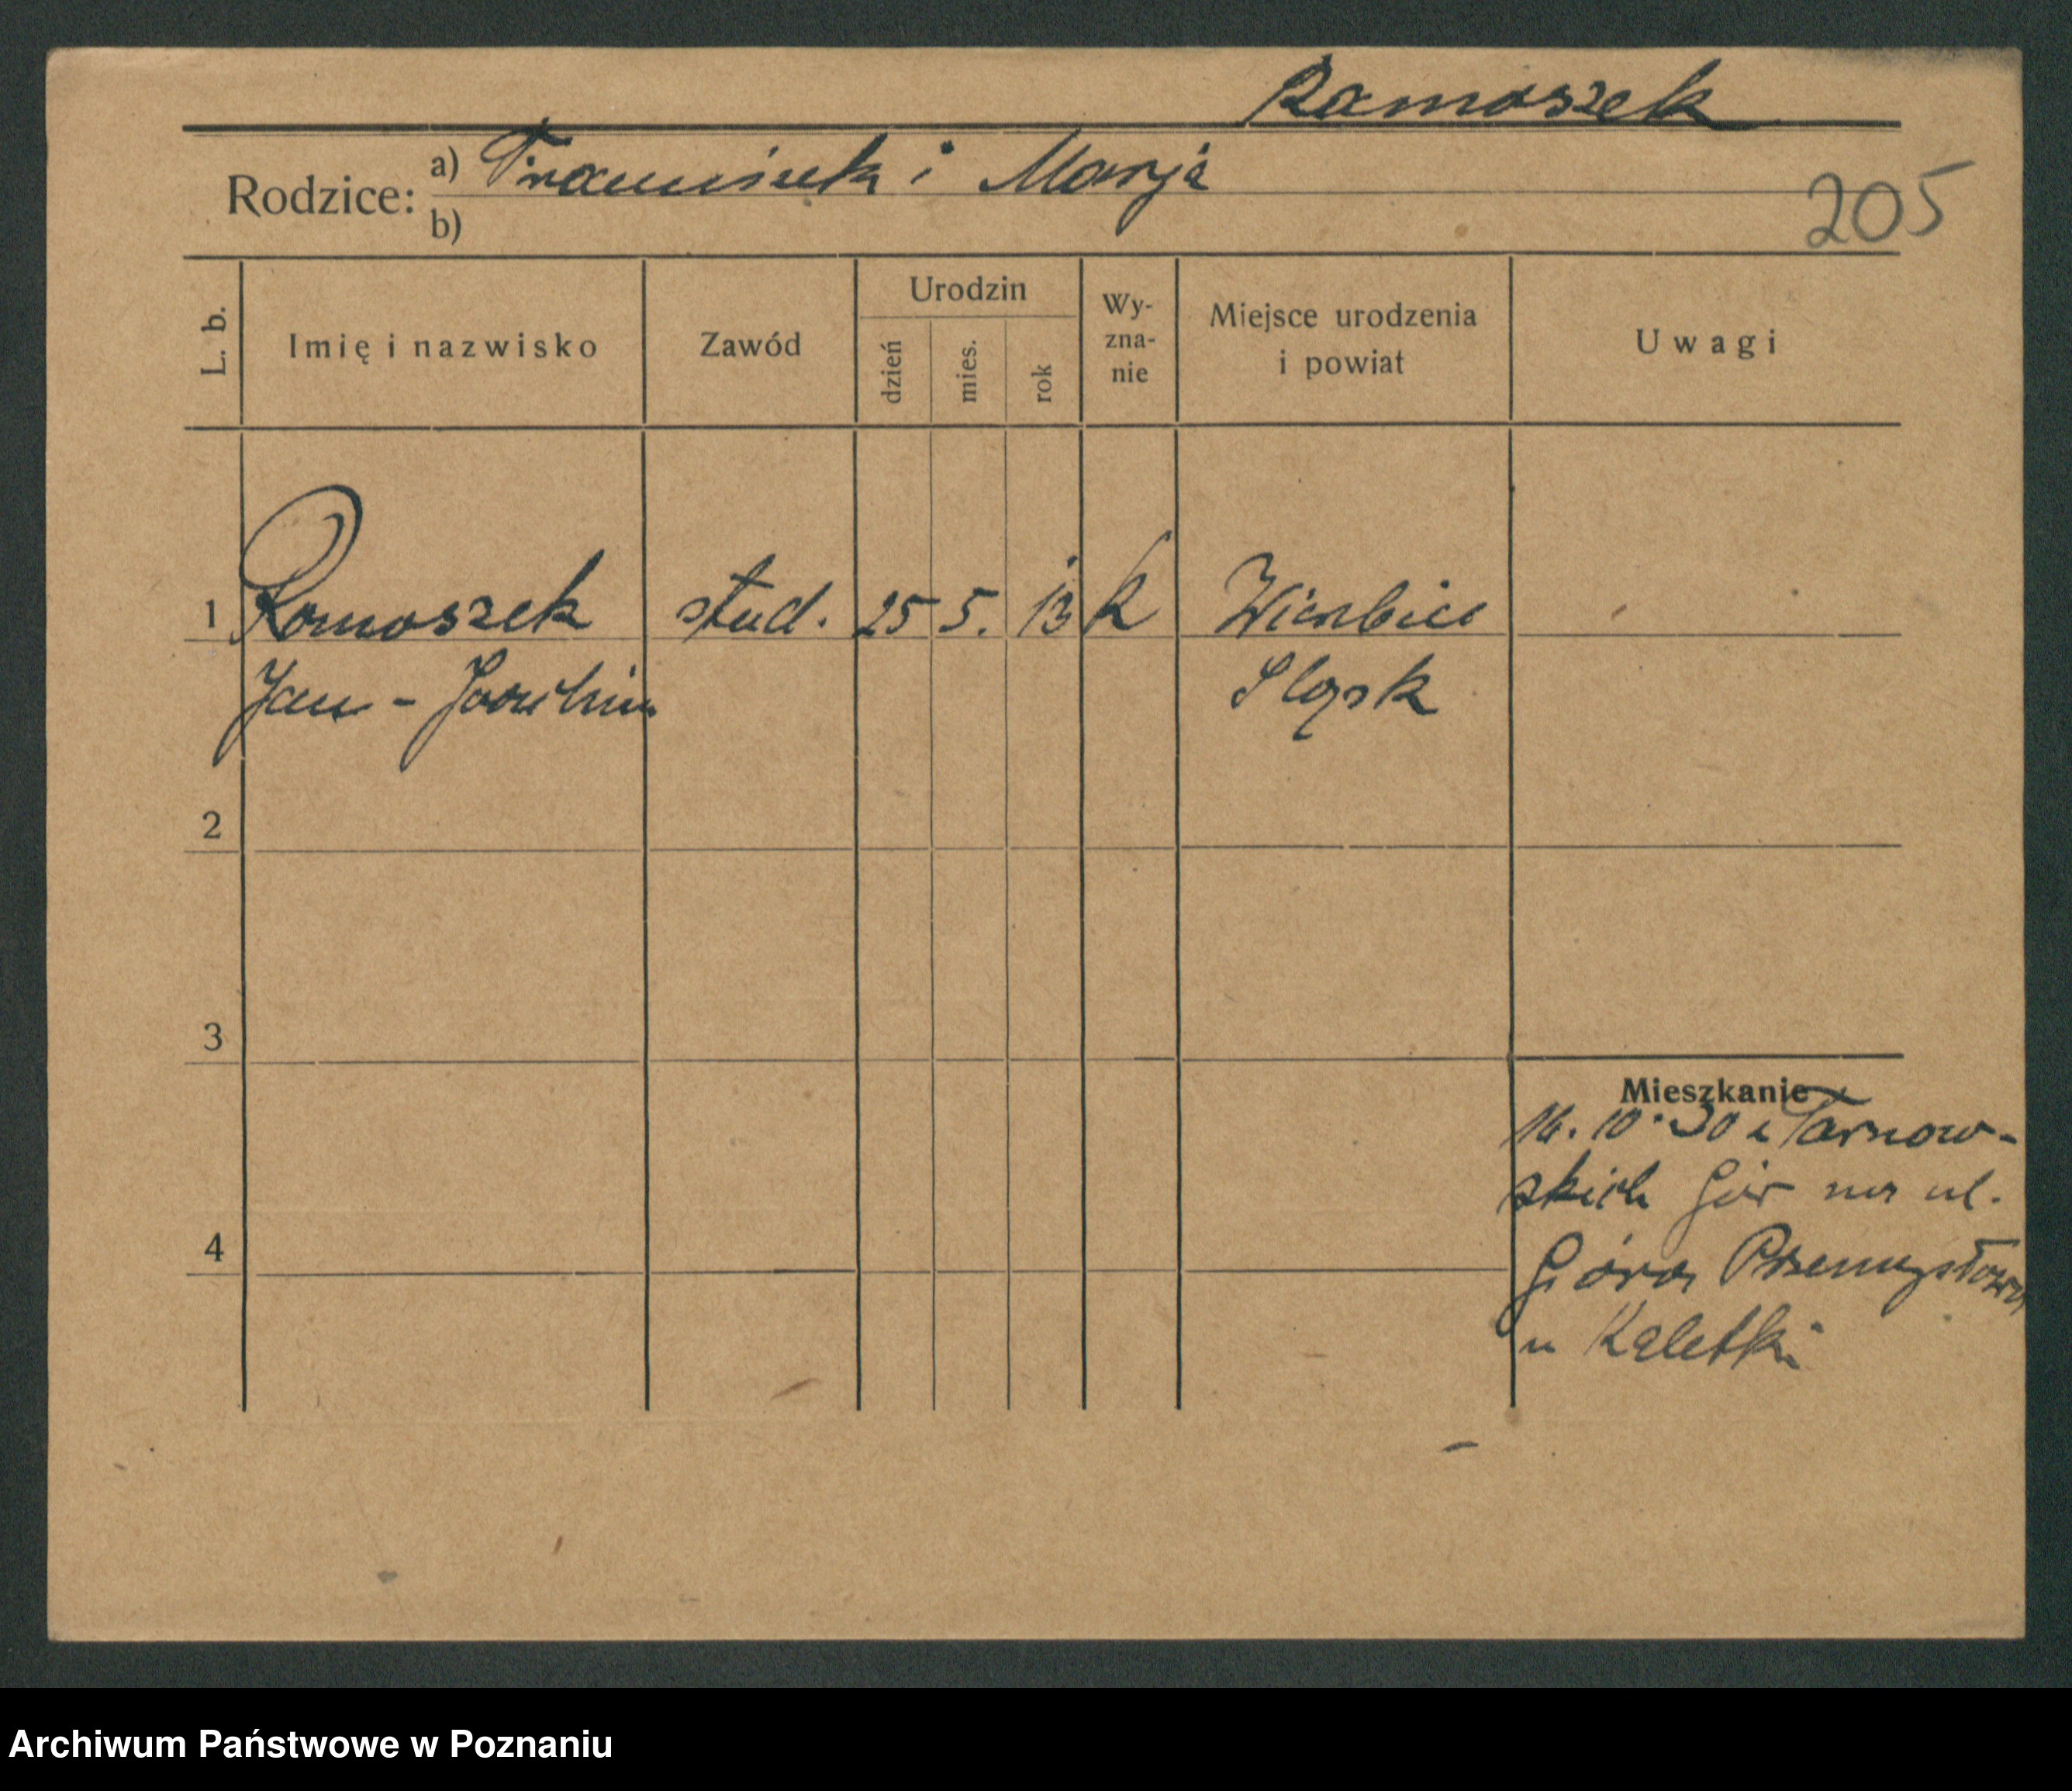 Ramoszek
Rodzice: a) Franciszek i Marja
b)
205
L. b.
Imię i nazwisko
Zawód
Urodzin
dzień
mies.
rok
Wy-
zna-
nie
Miejsce urodzenia
i powiat
Uwagi
1 Romoszek stud. 25 5. 13 k
Jan - Joachim Śląsk
2
3
4
Mieszkanie
16. 10. 30 z Tarnow-
skich Gór na ul.
Góra Przemysłowa
u Kaletki
Archiwum Państwowe w Poznaniu